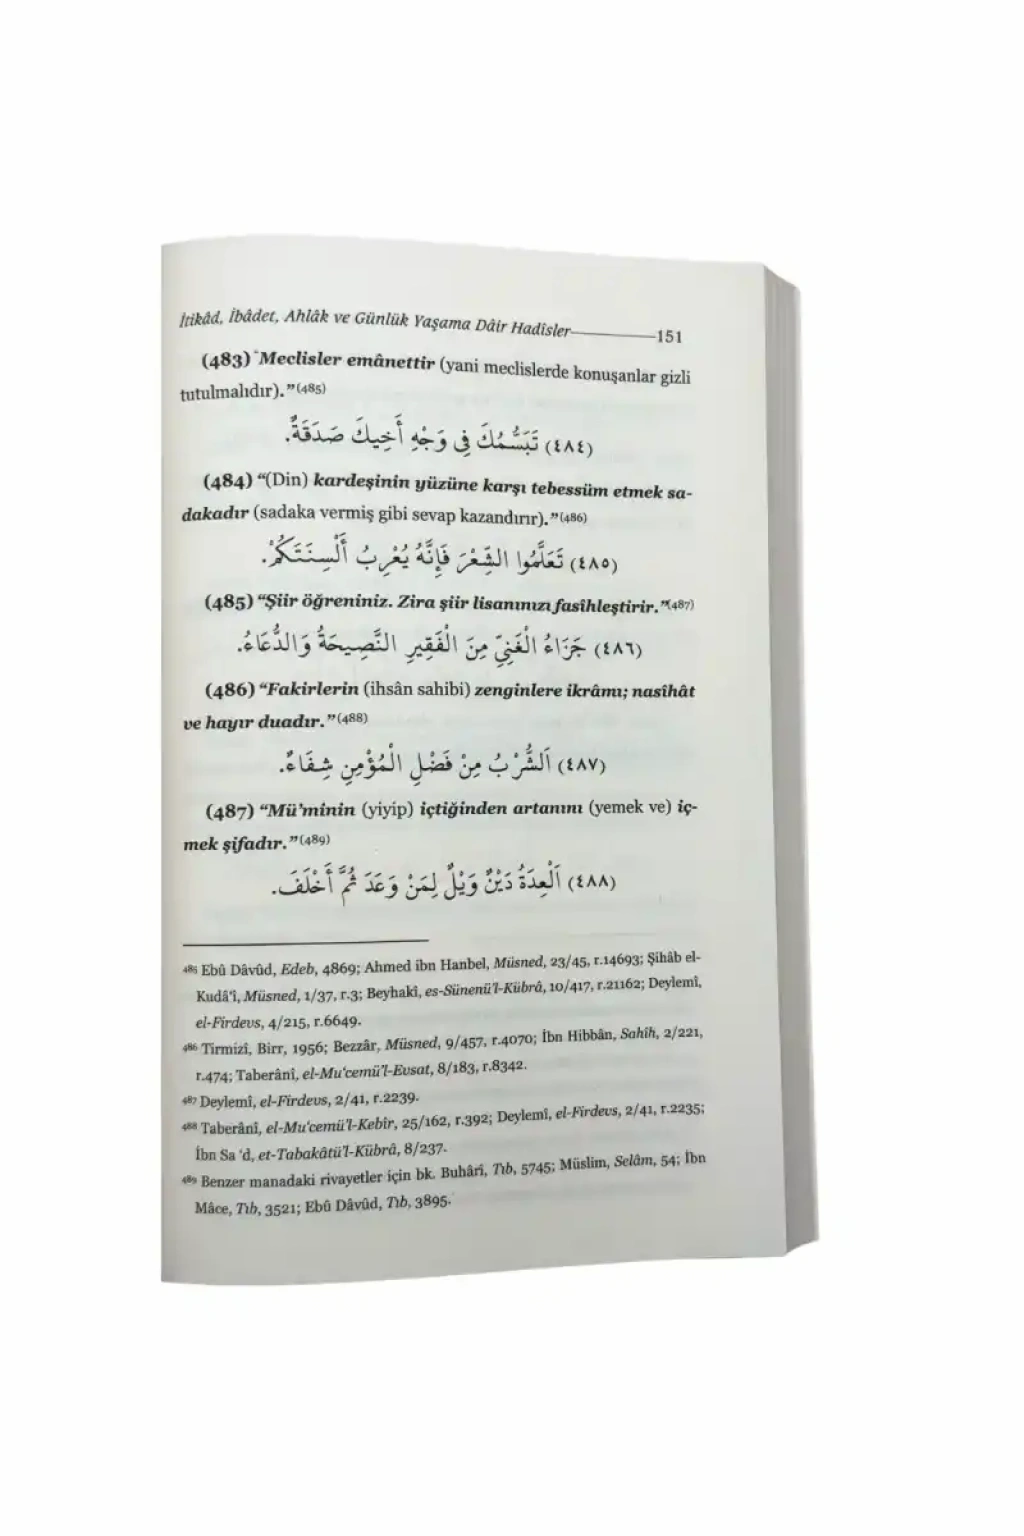 İtikâd, İbâdet, Ahlâk ve Günlük Yaşama Dâir Hadisler 151
(483) "Meclisler emânettir (yani meclislerde konuşanlar gizli
tutulmalıdır)."(485)
(٤٨٤) تَبَسُّمُكَ فِي وَجْهِ أَخِيكَ صَدَقَةٌ.
(484) "(Din) kardeşinin yüzüne karşı tebessüm etmek sa-
dakadır (sadaka vermiş gibi sevap kazandırır)."(486)
(٤٨٥) تَعَلَّمُوا الشِّعْرَ فَإِنَّهُ يُعْرِبُ أَلْسِنَتَكُمْ.
(485) "Şiir öğreniniz. Zira şiir lisanınızı fasîhleştirir."(487)
(٤٨٦) جَزَاءُ الْغَنِيِّ مِنَ الْفَقِيرِ النَّصِيحَةُ وَالدُّعَاءُ.
(486) "Fakirlerin (ihsân sahibi) zenginlere ikrâmı; nasîhât
ve hayır duadır."(488)
(٤٨٧) اَلشُّرْبُ مِنْ فَضْلِ الْمُؤْمِنِ شِفَاءٌ.
(487) "Mü'minin (yiyip) içtiğinden artanını (yemek ve) iç-
mek şifadır."(489)
(٤٨٨) اَلْعِدَةُ دَيْنٌ وَيْلٌ لِمَنْ وَعَدَ ثُمَّ أَخْلَفَ.
485 Ebû Dâvûd, Edeb, 4869; Ahmed ibn Hanbel, Müsned, 23/45, r.14693; Şihâb el-
Kudâ'î, Müsned, 1/37, r.3; Beyhakî, es-Sünenü'l-Kübrâ, 10/417, r.21162; Deylemî,
el-Firdevs, 4/215, r.6649.
486 Tirmizî, Birr, 1956; Bezzâr, Müsned, 9/457, r.4070; İbn Hibbân, Sahîh, 2/221,
r.474; Taberânî, el-Mu'cemü'l-Evsat, 8/183, r.8342.
487 Deylemî, el-Firdevs, 2/41, r.2239.
488 Taberânî, el-Mu'cemü'l-Kebîr, 25/162, r.392; Deylemî, el-Firdevs, 2/41, r.2235;
İbn Sa 'd, et-Tabakâtü'l-Kübrâ, 8/237.
489 Benzer manadaki rivayetler için bk. Buhârî, Tıb, 5745; Müslim, Selâm, 54; İbn
Mâce, Tıb, 3521; Ebû Dâvûd, Tıb, 3895.